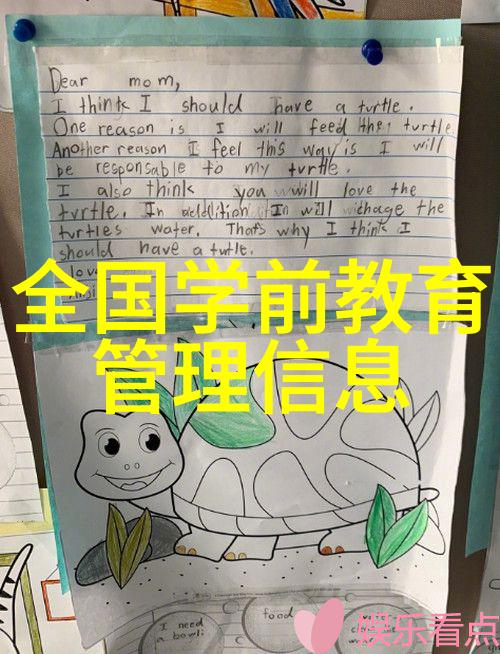 Dear mom,
I think I should have a turtle.
One reason is I will feed the turtle.
Another reason I feel this way is I will
be responsable to my turtle.
I also think you will love the
turtle. In addition I will chage the
turtles water. Thats why I think I
should have a turtle.
love
全国学前教育
管理信息
I need
a bowl
food
娱乐看点